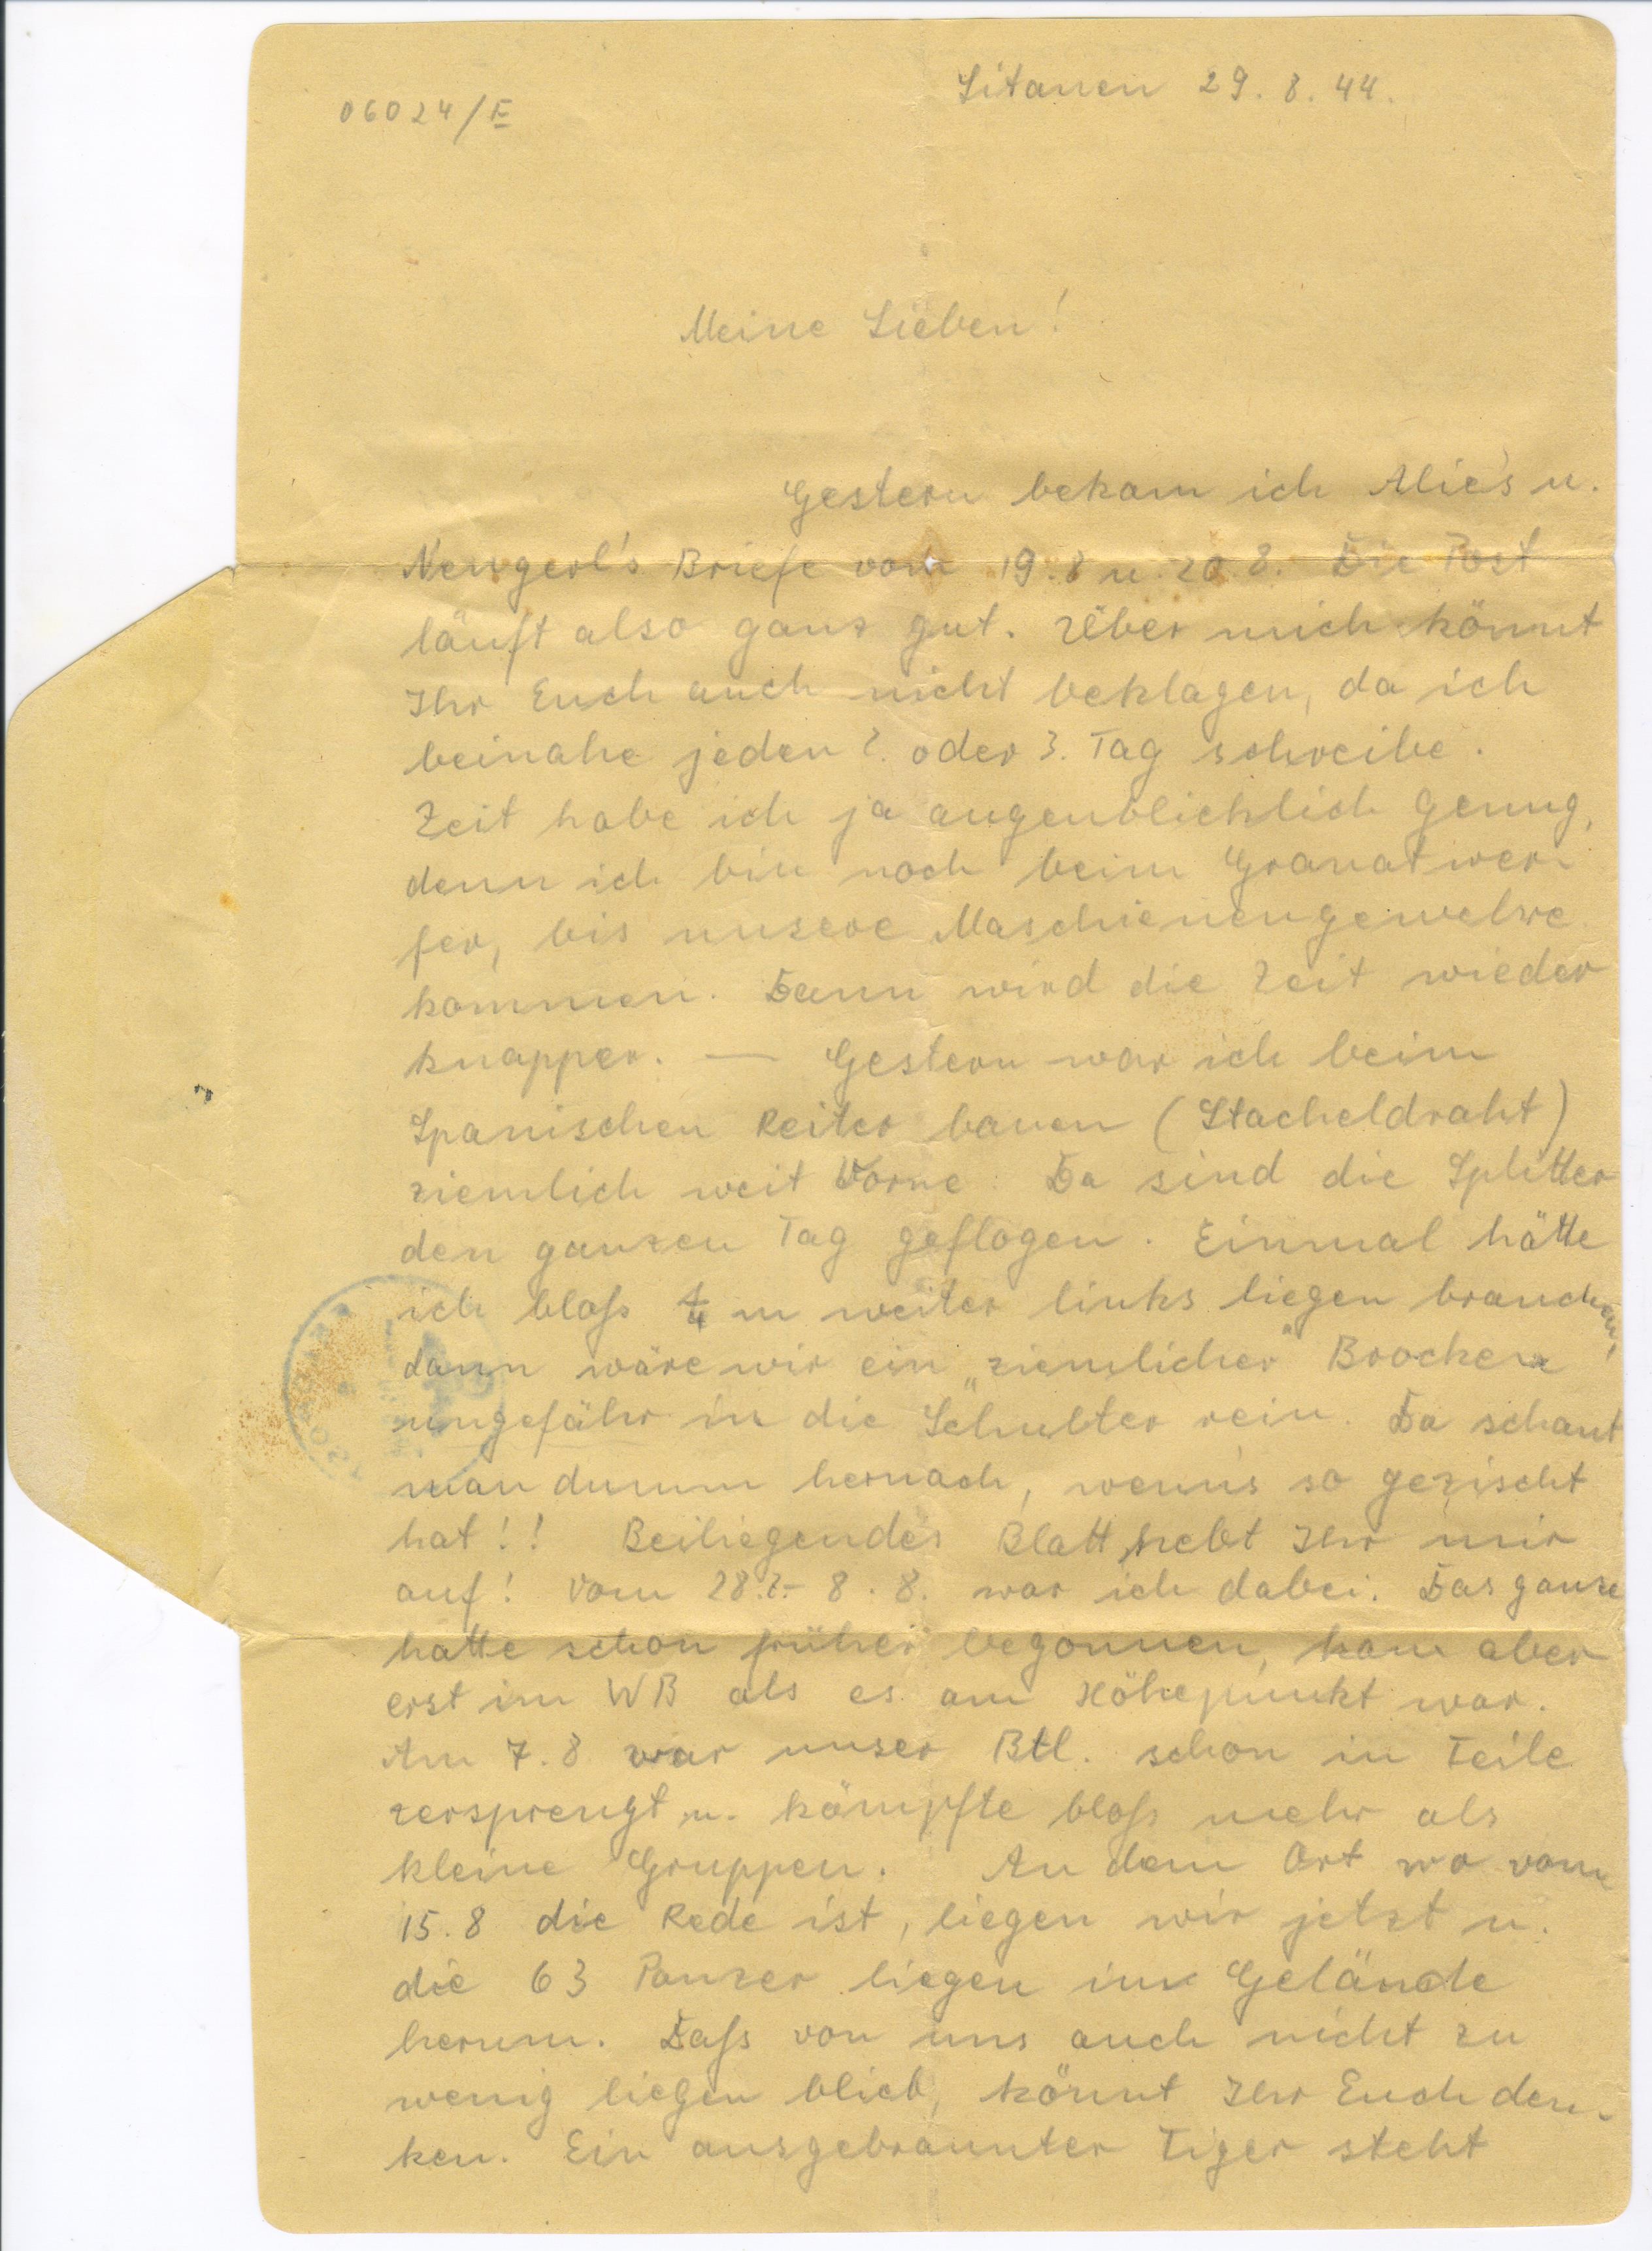 06024/E
Litauen 29. 8. 44.
Meine Lieben!
Gestern bekam ich Alie's u.
Newgerl's Briefe vom 19. 8 u. 20. 8. Die Post
läuft also ganz gut. Über mich könnt
Ihr Euch auch nicht beklagen, da ich
beinahe jeden 2. oder 3. Tag schreibe.
Zeit habe ich ja augenblicklich genug,
denn ich bin noch beim Granatwer-
fer, bis unsere Maschienengewehre
kommen. Dann wird die Zeit wieder
knapper. — Gestern war ich beim
Spanischen Reiter bauen (Stacheldraht)
ziemlich weit Vorne. Da sind die Splitter
den ganzen Tag geflogen. Einmal hätte
ich bloß m weiter links liegen brauchen,
dann wäre mir ein „ziemlicher" Brocken
ungefähr in die Schulter rein. Da schaut
man dumm hernach, wenn's so gezischt
hat!! Beiliegendes Blatt hebt Ihr mir
auf! Vom 28.7.- 8. 8. war ich dabei. Das ganze
hatte schon früher begonnen, kam aber
erst im WB als es am Höhepunkt war.
Am 7. 8 war unser Btl. schon in Teile
zersprengt u. kämpfte bloß mehr als
kleine Gruppen. An dem Ort wo vom
15. 8 die Rede ist, liegen wir jetzt u.
die 63 Panzer liegen im Gelände
herum. Daß von uns auch nicht zu
wenig liegen blieb, könnt Ihr Euch den-
ken. Ein ausgebrannter Tiger steht